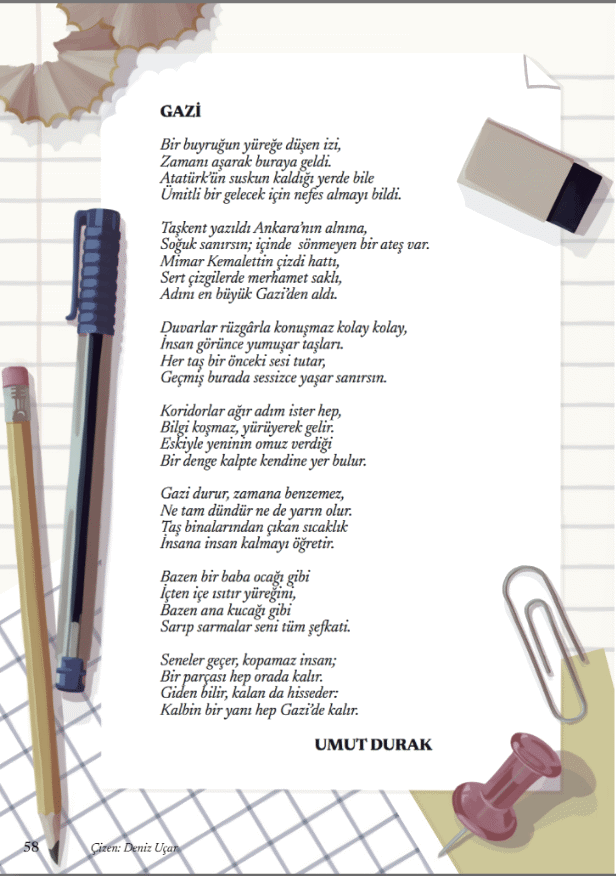 GAZİ
Bir buyruğun yüreğe düşen izi,
Zamanı aşarak buraya geldi.
Atatürk'ün suskun kaldığı yerde bile
Ümitli bir gelecek için nefes almayı bildi.
Taşkent yazıldı Ankara'nın alnına,
Soğuk sanırsın; içinde sönmeyen bir ateş var.
Mimar Kemalettin çizdi hattı,
Sert çizgilerde merhamet saklı,
Adını en büyük Gazi'den aldı.
Duvarlar rüzgârla konuşmaz kolay kolay,
İnsan görünce yumuşar taşları.
Her taş bir önceki sesi tutar,
Geçmiş burada sessizce yaşar sanırsın.
Koridorlar ağır adım ister hep,
Bilgi koşmaz, yürüyerek gelir.
Eskiyle yeninin omuz verdiği
Bir denge kalpte kendine yer bulur.
Gazi durur, zamana benzemez,
Ne tam dündür ne de yarın olur.
Taş binalarından çıkan sıcaklık
İnsana insan kalmayı öğretir.
Bazen bir baba ocağı gibi
İçten içe ısıtır yüreğini,
Bazen ana kucağı gibi
Sarıp sarmalar seni tüm şefkati.
Seneler geçer, kopamaz insan;
Bir parçası hep orada kalır.
Giden bilir, kalan da hisseder:
Kalbin bir yanı hep Gazi'de kalır.
UMUT DURAK
58 Çizen: Deniz Uçar